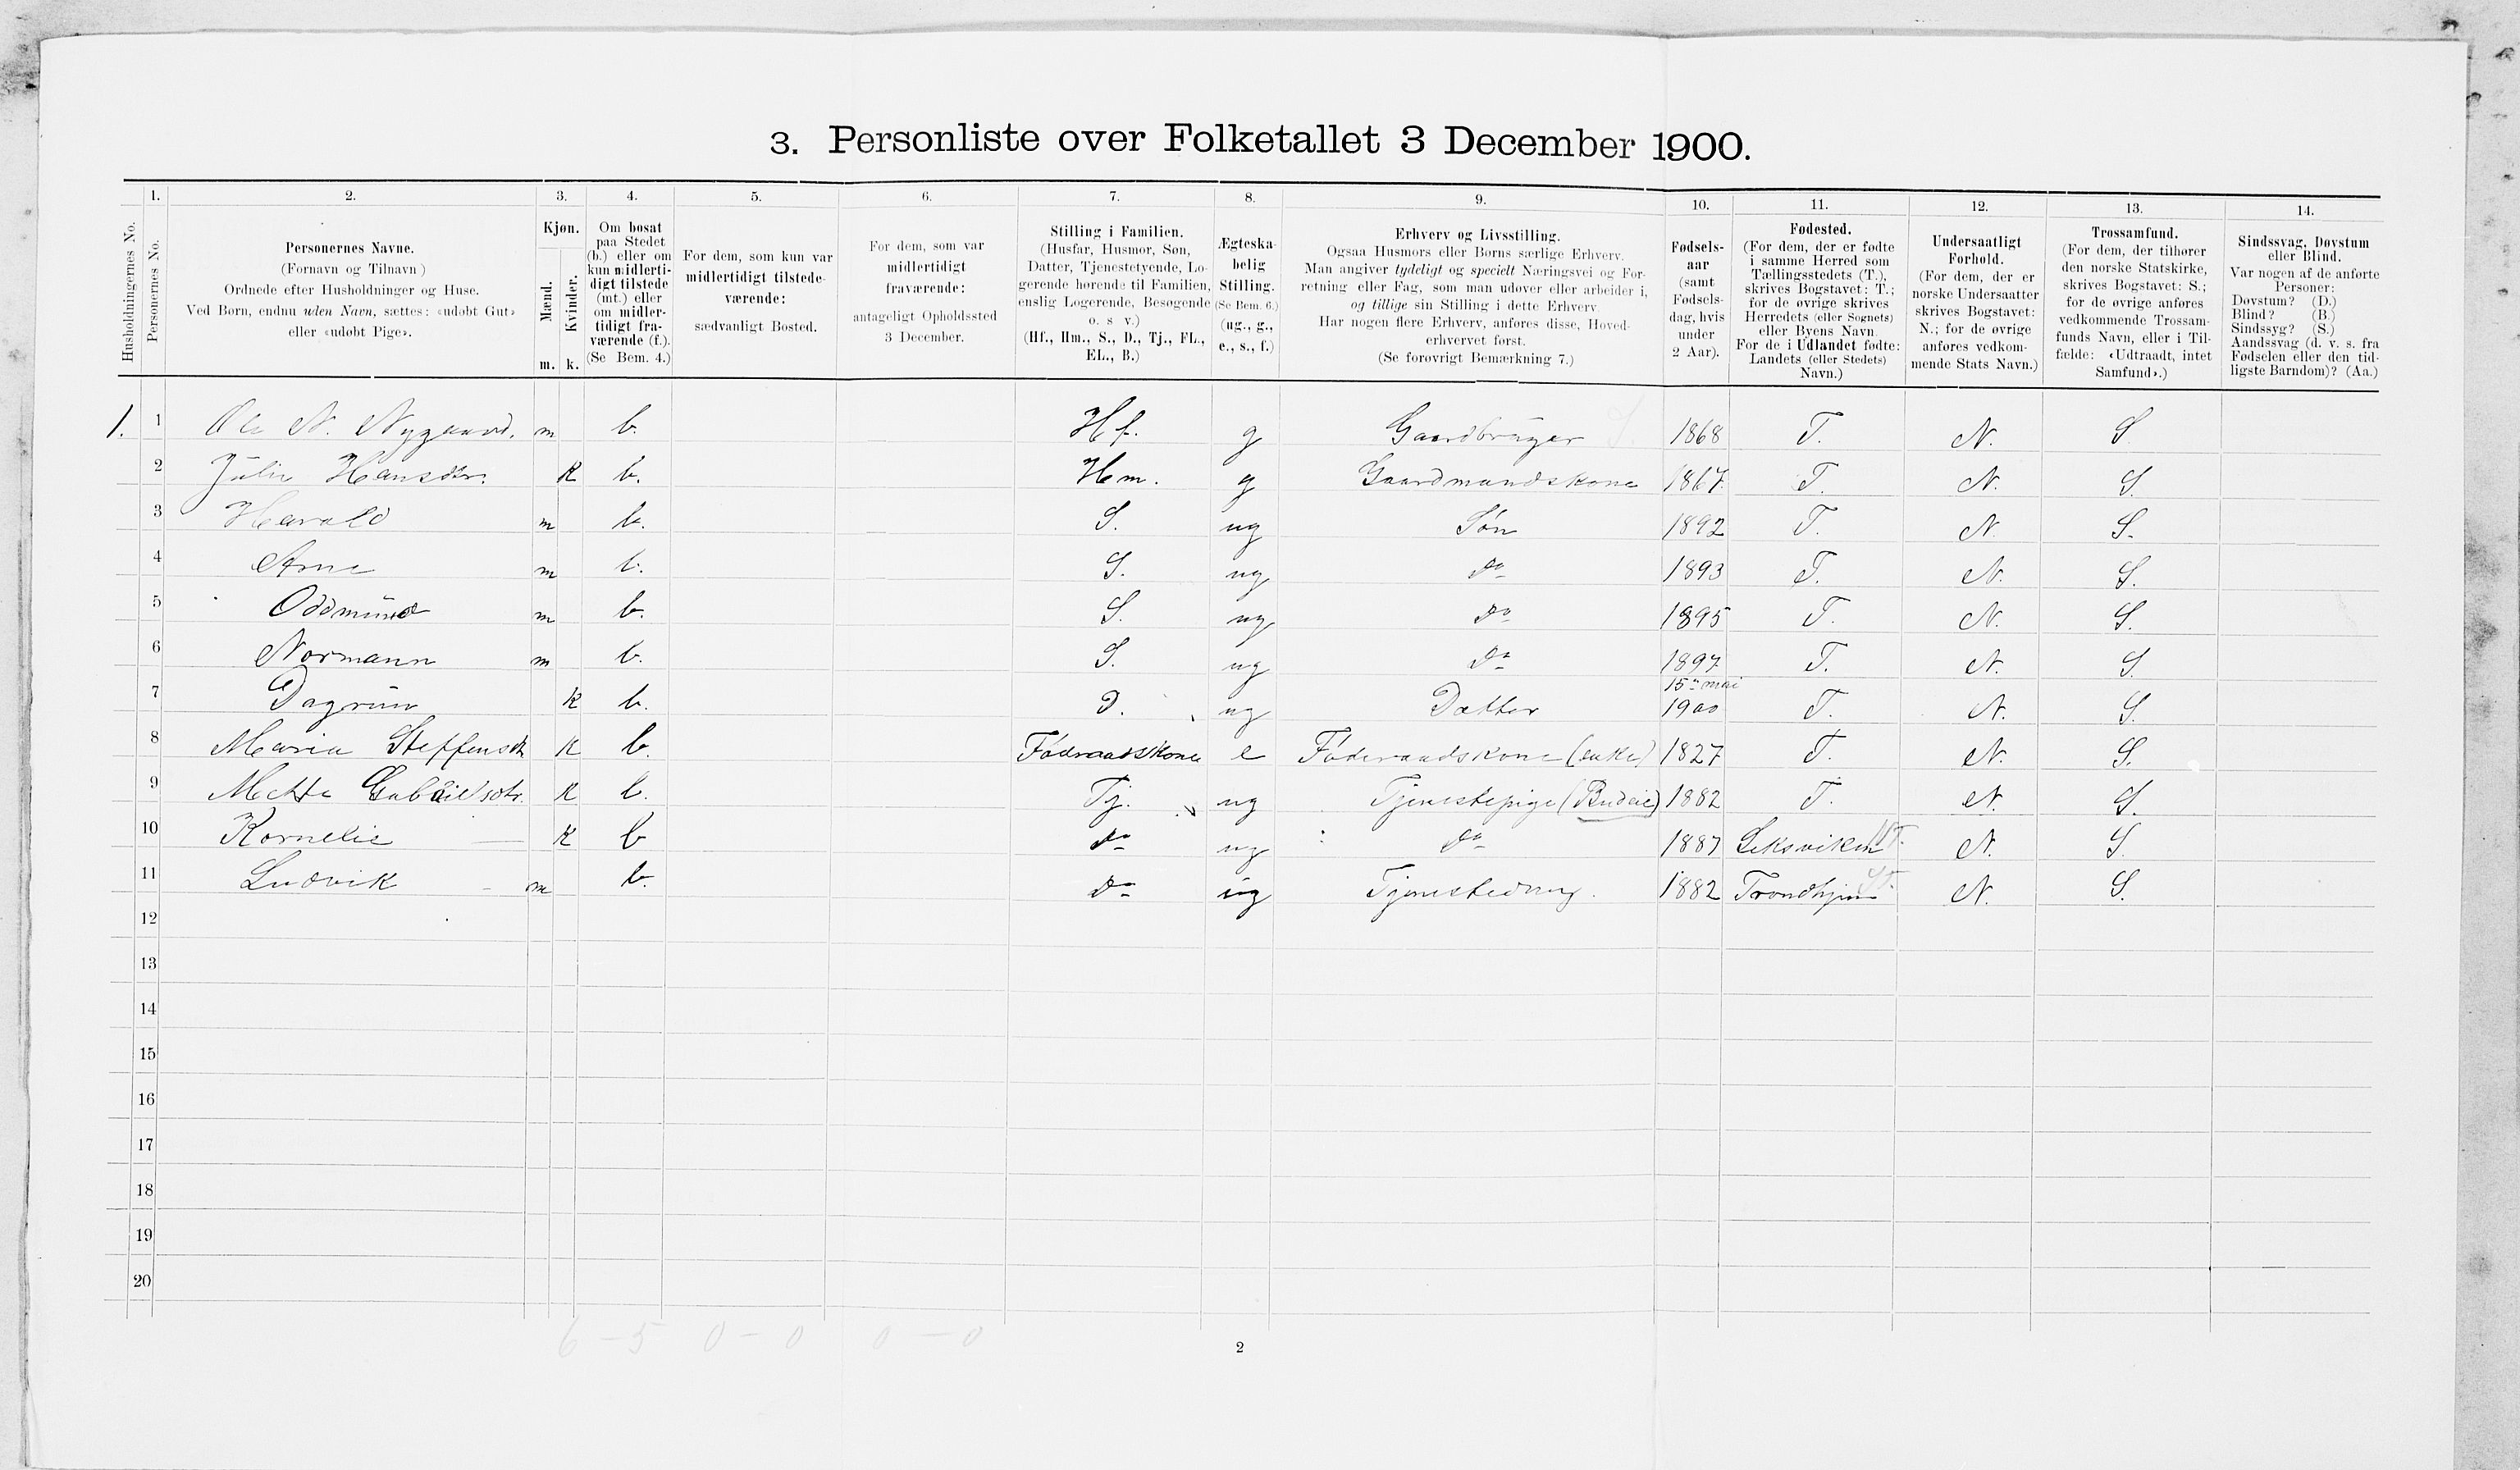 3. Personliste over Folketallet 3 December 1900.
1. 2. 3. 4. 5. 6. 7. 8. 9. 10. 11. 12. 13. 14.
Husholdningernes No.
Personernes No.
Personernes Navne.
(Fornavn og Tilnavn)
Ordnede efter Husholdninger og Huse.
Ved Børn, endnu uden Navn, sættes: «udøbt Gut»
eller «udøbt Pige».
Kjøn.
Mænd.
Kvinder.
m. k.
Om bosat
paa Stedet
(b.) eller om
kun midlerti-
digt tilstede
(mt.) eller
om midler-
tidigt fra-
værende (f.).
(Se Bem. 4.)
For dem, som kun var
midlertidigt tilstede-
værende:
sædvanligt Bosted.
For dem, som var
midlertidigt
fraværende:
antageligt Opholdssted
3 December.
Stilling i Familien.
(Husfar, Husmor, Søn,
Datter, Tjenestetyende, Lo-
gerende hørende til Familien,
enslig Logerende, Besøgende
o. s v.)
(Hf., Hm., S., D., Tj., FL.,
EL., B.)
Ægteska-
belig
Stilling.
(Se Bem. 6.)
(ug., g.,
e., s., f.)
Erhverv og Livsstilling.
Ogsaa Husmors eller Børns særlige Erhverv.
Man angiver tydeligt og specielt Næringsvei og For-
retning eller Fag, som man udøver eller arbeider i,
og tillige sin Stilling i dette Erhverv.
Har nogen flere Erhverv, anføres disse, Hoved-
erhvervet først.
(Se forøvrigt Bemærkning 7.)
Fødsels-
aar
(samt
Fødsels-
dag, hvis
under
2 Aar).
Fødested.
(For dem, der er fødte
i samme Herred som
Tællingsstedets (T.),
skrives Bogstavet: T.;
for de øvrige skrives
Herredets (eller Sognets)
eller Byens Navn.
For de i Udlandet fødte:
Landets (eller Stedets)
Navn.)
Undersaatligt
Forhold.
(For dem, der er
norske Undersaatter
skrives Bogstavet:
N.; for de øvrige
anføres vedkom-
mende Stats Navn.)
Trossamfund.
(For dem, der tilhører
den norske Statskirke,
skrives Bogstavet: S.;
for de øvrige anføres
vedkommende Trossam-
funds Navn, eller i Til-
fælde: «Udtraadt, intet
Samfund».)
Sindssvag, Døvstum
eller Blind.
Var nogen af de anførte
Personer:
Døvstum? (D.)
Blind? (B.)
Sindssyg? (S.)
Aandssvag (d. v. s. fra
Fødselen eller den tid-
ligste Barndom)? (Aa.)
1. 1 Ole N. Nygaard. m b. Hf. g Gaardbruger S. 1868 T. N. S
2 Julie Hansdtr. K b. Hm. g Gaardmandskone 1867 T. N. S.
3 Harald m b. S. ug Søn 1892 T. N. S.
4 Arne m b. S. ug Do 1893 T. N. S.
5 Oddmund m b. S. ug Do 1895 T. N. S.
6 Normann m b. S. ug Do 1897 T. N. S.
7 Dagrun K b. D. ug Datter 15de mai 1900 T. N. S.
8 Maria Steffensdtr K b. Føderaadskone e Føderaadskone (enke) 1827 T. N. S.
9 Mette Gabrielsdtr. K b. Tj. ug Tjenestepige (Budeie) 1882 T. N. S.
10 Kornelie — K b Do ug Do 1887 Leksviken N. S.
11 Ludvik - m b. Do ug Tjenestedreng. 1882 Trondhjem N. S.
12
13
14
15
16
17
18
19
20
6 - 5 0 - 0 0 - 0
2